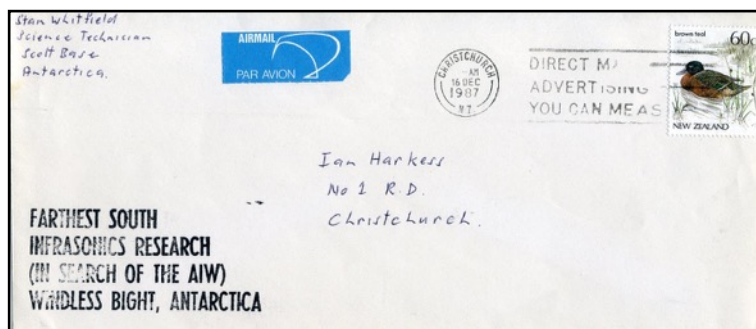 Stan Whitfield
Science Technician
Scott Base
Antarctica.
AIRMAIL
PAR AVION
CHRISTCHURCH
AM
16 DEC
1987
N.Z.
DIRECT MA
ADVERTISING
YOU CAN MEAS
brown teal
60c
NEW ZEALAND
Ian Harkess
No 1 R.D.
Christchurch.
FARTHEST SOUTH
INFRASONICS RESEARCH
(IN SEARCH OF THE AIW)
WINDLESS BIGHT, ANTARCTICA